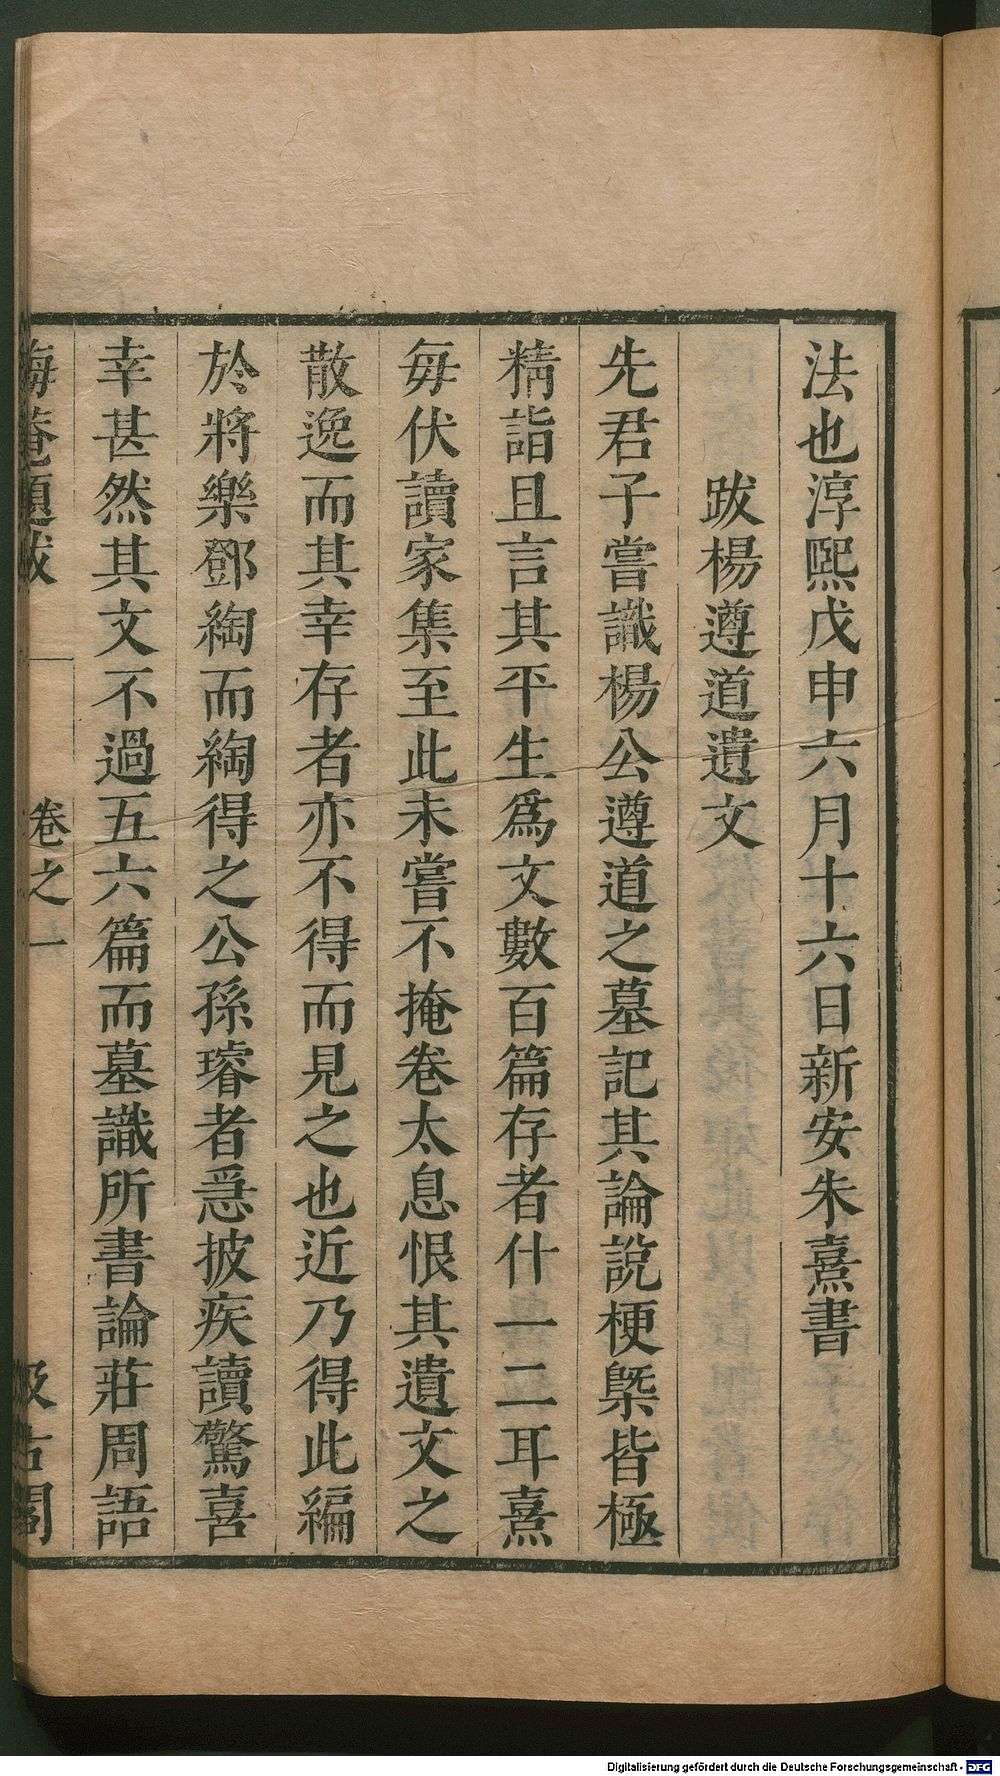 法也淳熙戊申六月十六日新安朱熹書
跋楊遵道遺文
先君子嘗識楊公遵道之墓記其論說梗槩皆極
精詣且言其平生爲文數百篇存者什一二耳熹
每伏讀家集至此未嘗不掩卷太息恨其遺文之
散逸而其幸存者亦不得而見之也近乃得此編
於將樂鄧綯而綯得之公孫璿者亟披疾讀驚喜
幸甚然其文不過五六篇而墓識所書論莊周語
晦菴題跋 卷之一 汲古閣
Digitalisierung gefördert durch die Deutsche Forschungsgemeinschaft - DFG